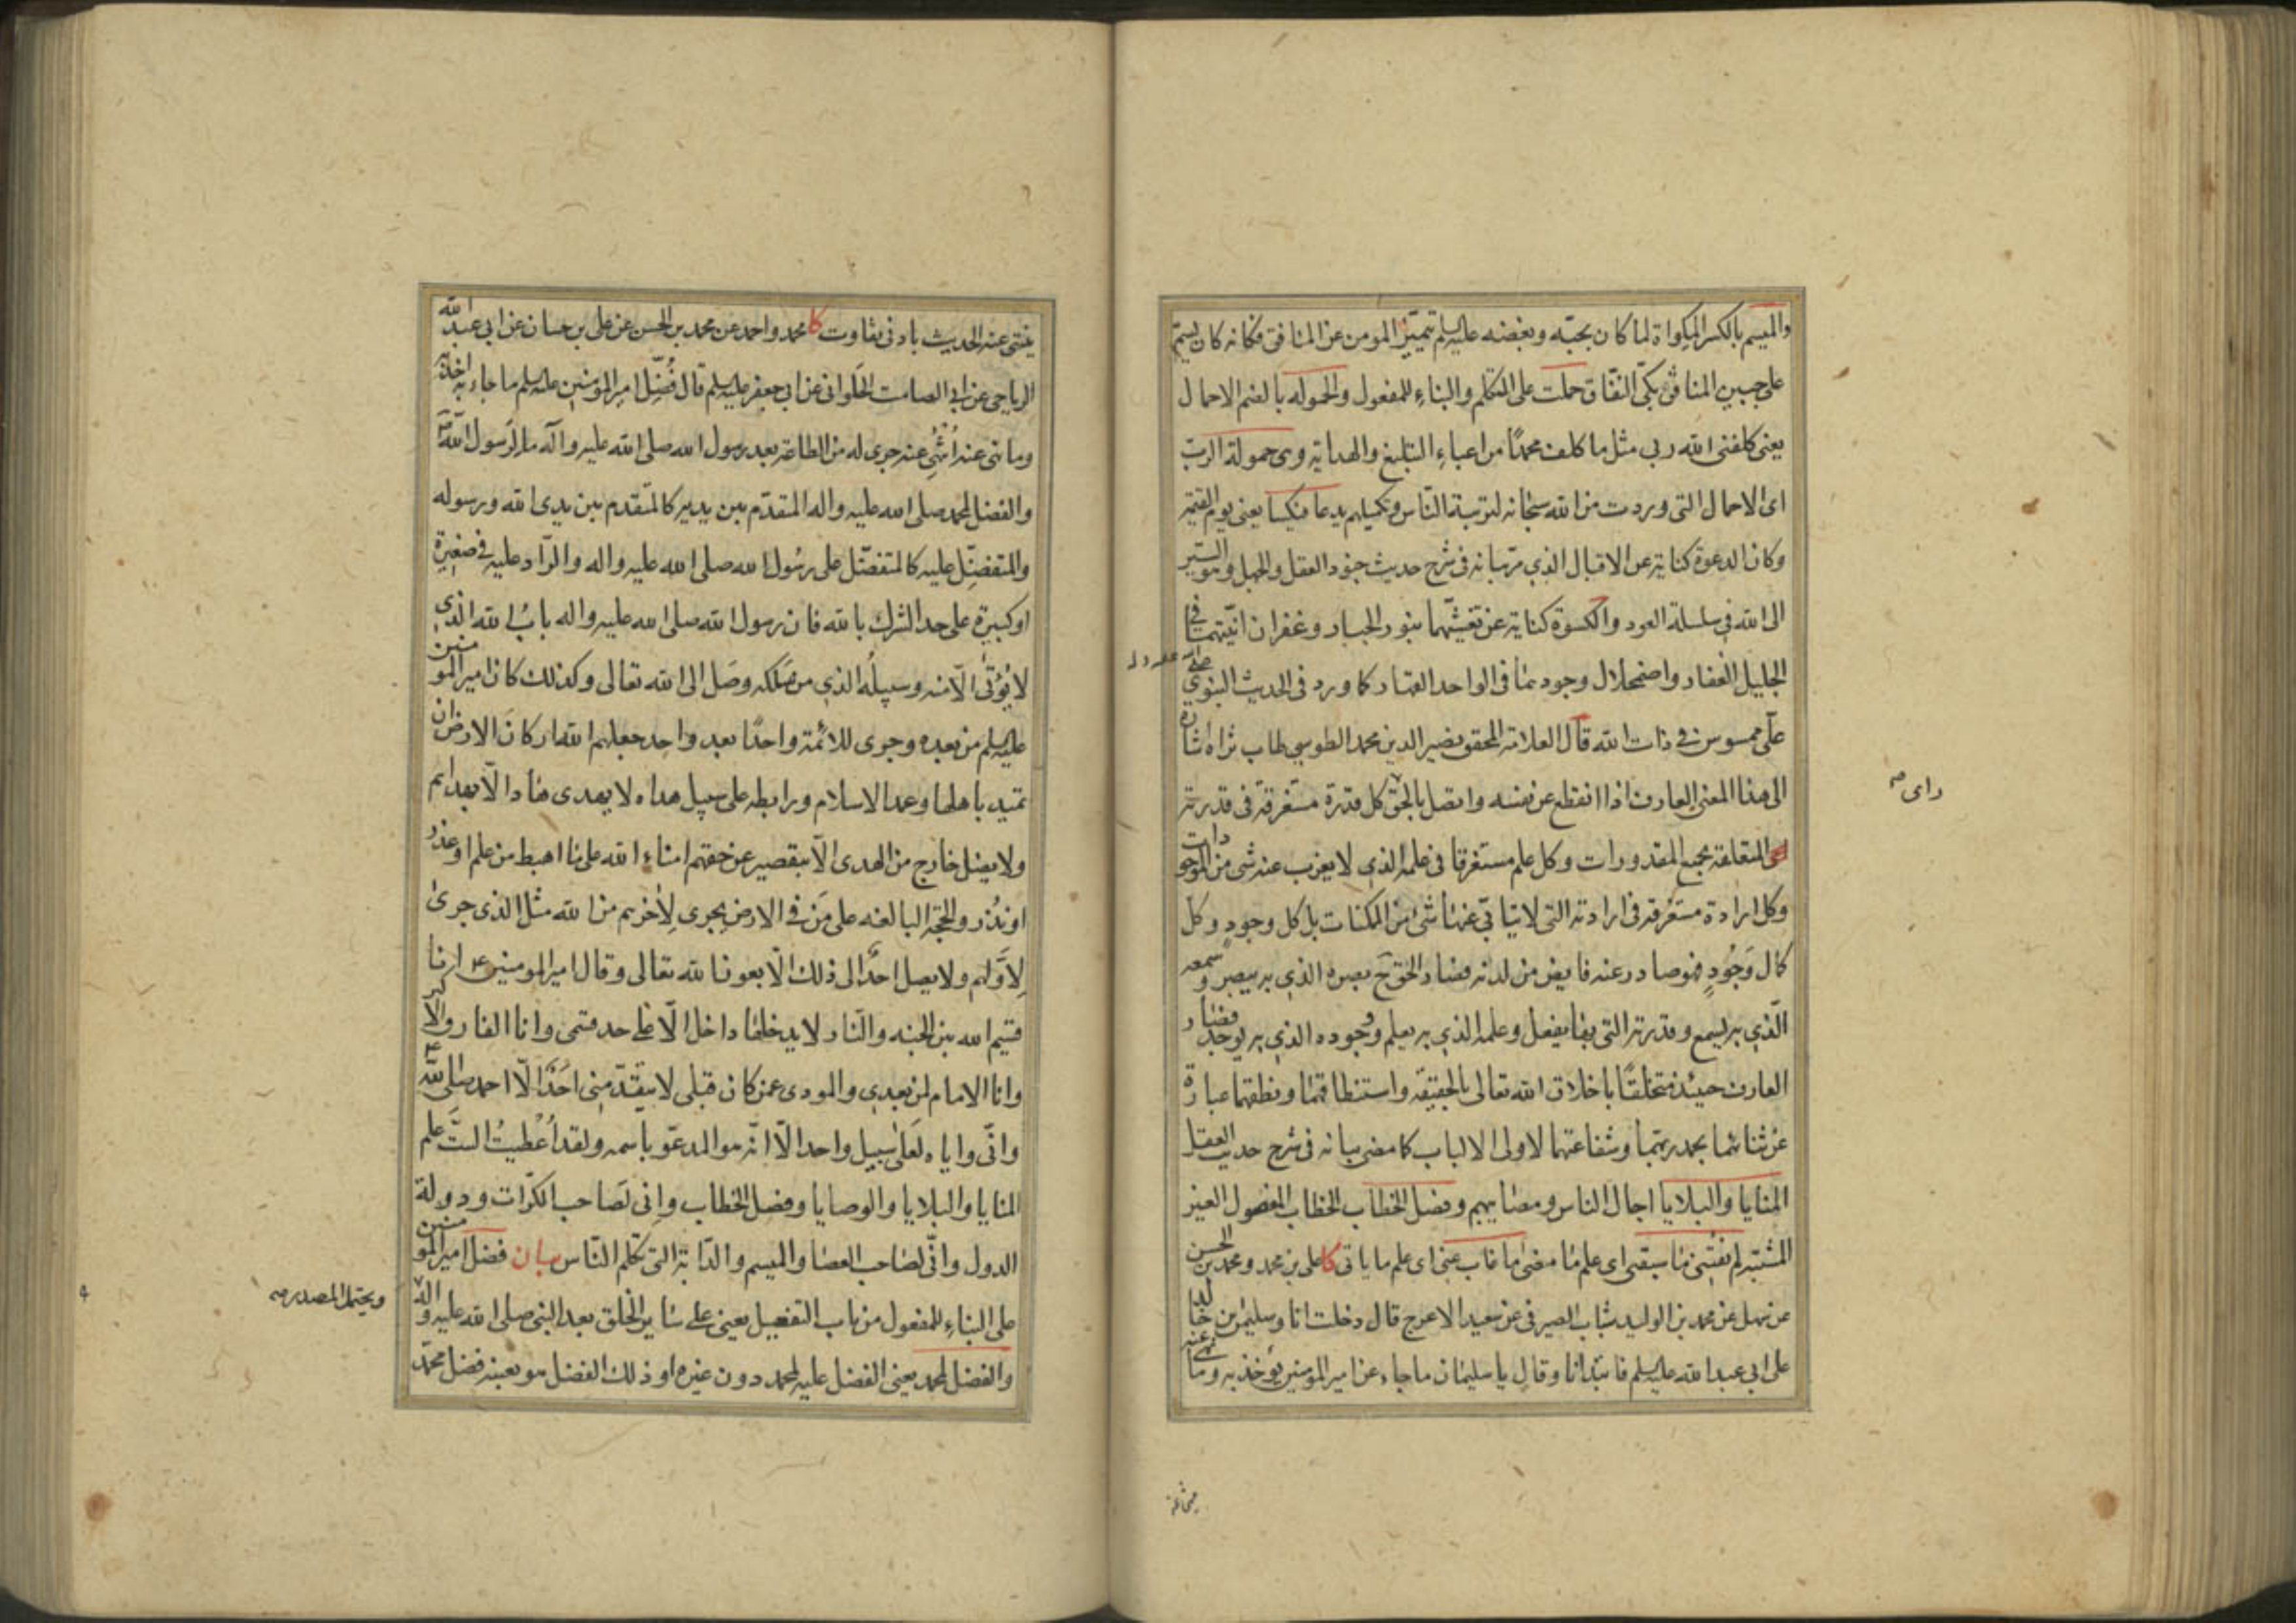 والميسم بالكسر المكواة لما كان بحبّه وبغضه عليه السلم تميّز المومن عن المنافق فكانه كان يسم
على جبين المنافق بكيّ النفاق حملت على التكلم والبناء للمفعول والحموله بالضم الاحمال
يعني كلفني الله ربي مثل ما كلف محمدًا من اعباء التبليغ والهداية وهي حمولة الرب
اى الاحمال التى وردت من الله سبحانه لتربية الناس وتكميلهم يدعا فيكسا يعنى يوم القيمة
وكان الدعوة كناية عن الاقبال الذي مرّ بيانه في شرح حديث جنود العقل والجهل وهو السير
الى الله في سلسلة العود والكسوة كناية عن تغشّيهما بنور الجبار وغفران انيّتهما في
الجليل الغفار واضمحلال وجودهما في الواحد القهار كما ورد في الحديث النبوي
علىّ ممسوس في ذات الله قال العلامة المحقق نصير الدين محمد الطوسي طاب ثراه اشارة
الى هذا المعنى العارف اذا انقطع عن نفسه واتصل بالحق كل قدرة مستغرقة في قدرته
المتعلقة بجميع المقدورات وكل علم مستغرقا في علمه الذي لا يعزب عنه شى من الموجودات
وكل ارادة مستغرقة في ارادته التى لا يتابّى عنها شئ من الممكنات بل كل وجود وكل
كمال وجود فهو صادر عنه فايض من لدنه فصار الحق ح بصره الذي به يبصر وسمعه
الّذي به يسمع وقدرته التى بها يفعل وعلمه الذي به يعلم ووجوده الذي به يوجد فصار
العارف حينئذ متخلقًا باخلاق الله تعالى بالحقيقة واستنطاقهما ونطقهما عبارة
عن ثنائهما بحمد ربهما وشفاعتهما لاولى الالباب كما مضى بيانه في شرح حديث العقل
المنايا والبلايا اجال الناس ومصايبهم وفصل الخطاب الخطاب المفصول الغير
المشتبه لم يفتنى ما سبقنى اى علم ما مضى ما غاب عنى اى علم ما ياتى كا على بن محمد ومحمد بن الحسن
عن سهل عن محمد بن الوليد شباب الصيرفى عن سعيد الاعرج قال دخلت انا وسليمان بن خالد
على ابى عبد الله عليه السلم فابتدانا وقال يا سليمان ما جاء عن امير المومنين يؤخذ به وما نهى عنه
راى صح
ينتهى عنه الحديث بادنى تفاوت كا محمد واحمد عن محمد بن الحسن عن على بن حسان عن ابى عبد الله
الرياحى عن ابي الصامت الحلوانى عن ابى جعفر عليه السلم قال فُضِّل امير المؤمنين عليه السلم ما جاء به اخذ به
وما نهى عنه انتُهِى عنه جرى له من الطاعة بعد رسول الله صلى الله عليه وآله ما لرسول الله ص
والفضل لمحمد صلى الله عليه واله المتقدّم بين يديه كالمتقدم بين يدى الله ورسوله
والمتفضّل عليه كالمتفضّل على رسول الله صلى الله عليه واله والرّاد عليه في صغيرة
او كبيرة على حد الشرك بالله فان رسول الله صلى الله عليه واله باب الله الذي
لا يُؤتى الّا منه وسبيله الذي من سلكه وصل الى الله تعالى وكذلك كان امير المومنين
عليه السلم من بعده وجرى للائمّة واحدًا بعد واحد جعلهم الله اركان الارض ان
تميد باهلها وعمد الاسلام ورابطه على سبيل هداه لا يهدى هاد الّا بهداهم
ولا يضل خارج من الهدى الّا بتقصير عن حقهم امناء الله على ما اهبط من علم او عذر
او نُذر والحجّة البالغه على مَن في الارض يجرى لاٰخرهم من الله مثل الذى جرى
لاوّلهم ولا يصل احدٌ الى ذلك الّا بعون الله تعالى وقال امير المومنين ع انا
قسيم الله بين الجنه والنار لا يدخلها داخل الّا على حد قسمى وانا الفاروق الاكبر
وانا الامام لمن بعدي والمودى عمن كان قبلى لا يتقدّمنى احدٌ الّا احمد صلى الله
وانّى واياه لعلى سبيل واحد الّا انّه هو المدعوّ باسمه ولقد أُعْطيتُ الستّ علم
المنايا والبلايا والوصايا وفصل الخطاب وانى لصاحب الكرّات ودولة
الدول وانّى لصاحب العصا والميسم والدّابّة التى تكلم النّاس بيان فضل امير المومنين
على البناء للمفعول من باب التفعيل يعنى على ساير الخلق بعد النبى صلى الله عليه واله
والفضل لمحمد يعنى الفضل عليه لمحمد دون غيره او ذلك الفضل هو بعينه فضل محمّد
ويحتمل المصدر صح